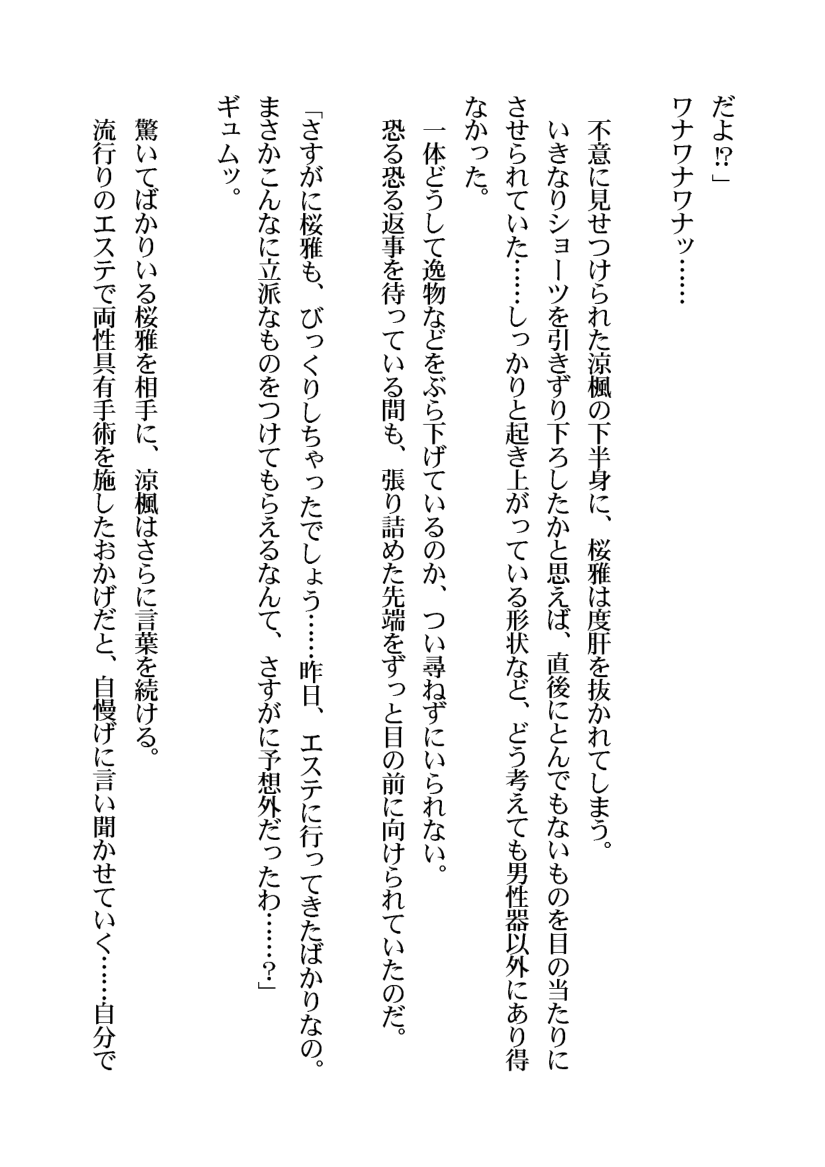 だよ!?」
ワナワナワナッ……
不意に見せつけられた涼楓の下半身に、桜雅は度肝を抜かれてしまう。
いきなりショーツを引きずり下ろしたかと思えば、直後にとんでもないものを目の当たりに
させられていた……しっかりと起き上がっている形状など、どう考えても男性器以外にあり得
なかった。
一体どうして逸物などをぶら下げているのか、つい尋ねずにいられない。
恐る恐る返事を待っている間も、張り詰めた先端をずっと目の前に向けられていたのだ。
「さすがに桜雅も、びっくりしちゃったでしょう……昨日、エステに行ってきたばかりなの。
まさかこんなに立派なものをつけてもらえるなんて、さすがに予想外だったわ……?」
ギュムッ。
驚いてばかりいる桜雅を相手に、涼楓はさらに言葉を続ける。
流行りのエステで両性具有手術を施したおかげだと、自慢げに言い聞かせていく……自分で